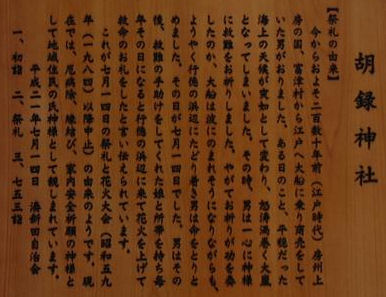 胡録神社
【祭礼の由来】
今からおよそ二百数十年前(江戸時代)房州上
房の国、富津村から江戸へ大船に乗り商売をして
いた男がおりました。ある日のこと、平穏だった
海上の天候が突如として変わり、怒涛渦巻く大嵐
となってしまいました。その時、男は一心に神様
に救難をお祈りしました。やがてお祈りが功を奏
したのか、大船は波にのまれそうになりながらも、
ようやく行徳の浜辺にたどり着き男は命をとりと
めました。その日が七月一四日でした。男はその
後、救難の手助けをしてくれた娘と所帯を持ち毎
年その日になると行徳の浜辺に来て花火を上げて
救命のお礼をしたと言い伝えられています。
これが七月一四日の祭礼と花火大会(昭和五九
年(一九八四)以降中止)の由来のようです。現
在では、厄病除、縁結び、家内安全祈願の神様と
して地域住民の氏神様として親しまれています。
平成二一年七月一四日 湊新田自治会
一、初詣 二、祭礼 三、七五三詣